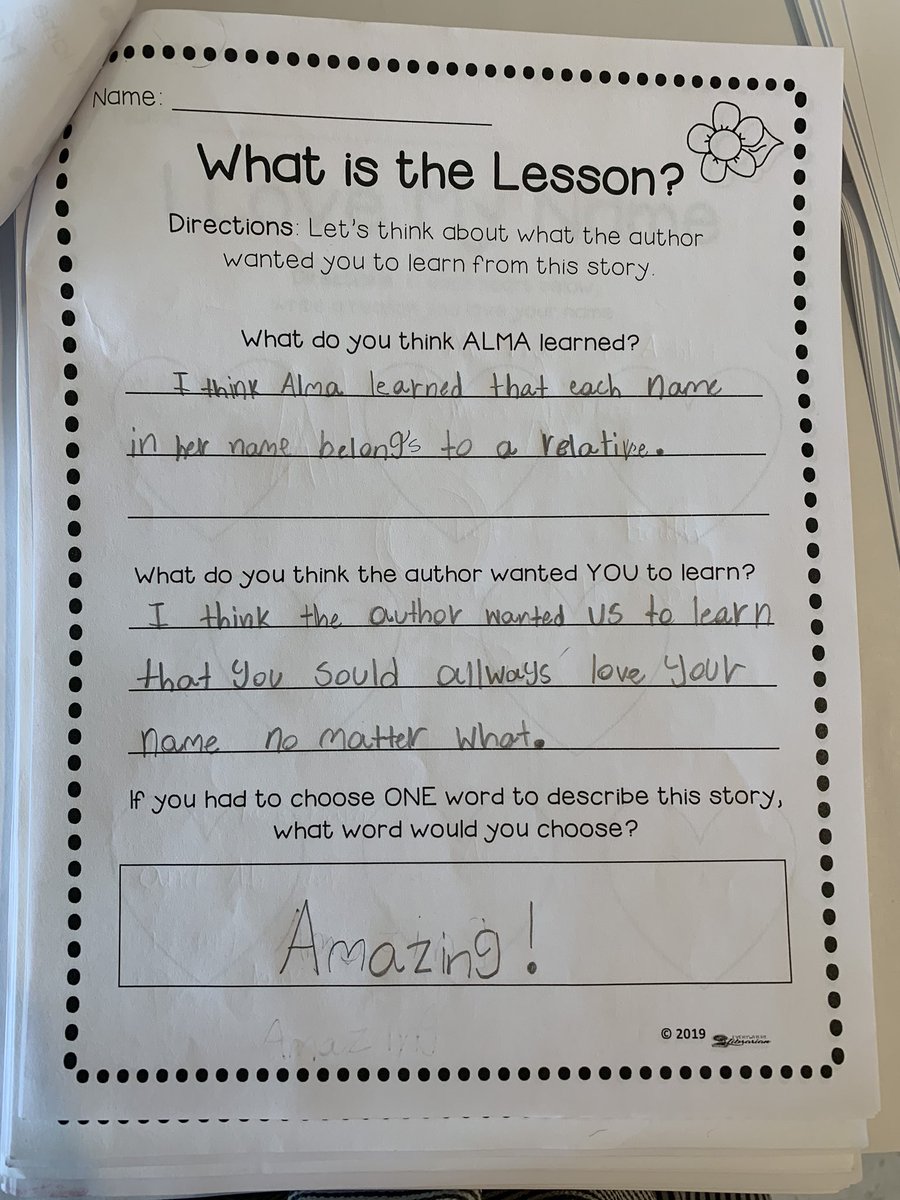 Name:
What is the Lesson?
Directions: Let's think about what the author
wanted you to learn from this story.
What do you think ALMA learned?
I think Alma learned that each name
in her name belong's to a relative.
What do you think the author wanted YOU to learn?
I think the author wanted us to learn
that you sould allways love your
name no matter what.
If you had to choose ONE word to describe this story,
what word would you choose?
Amazing!
Amazing
© 2019 Literarian